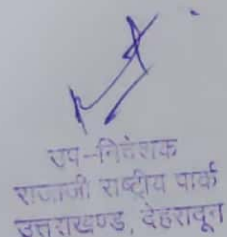 उप-निदेशक
राजाजी राष्ट्रीय पार्क
उत्तराखण्ड, देहरादून